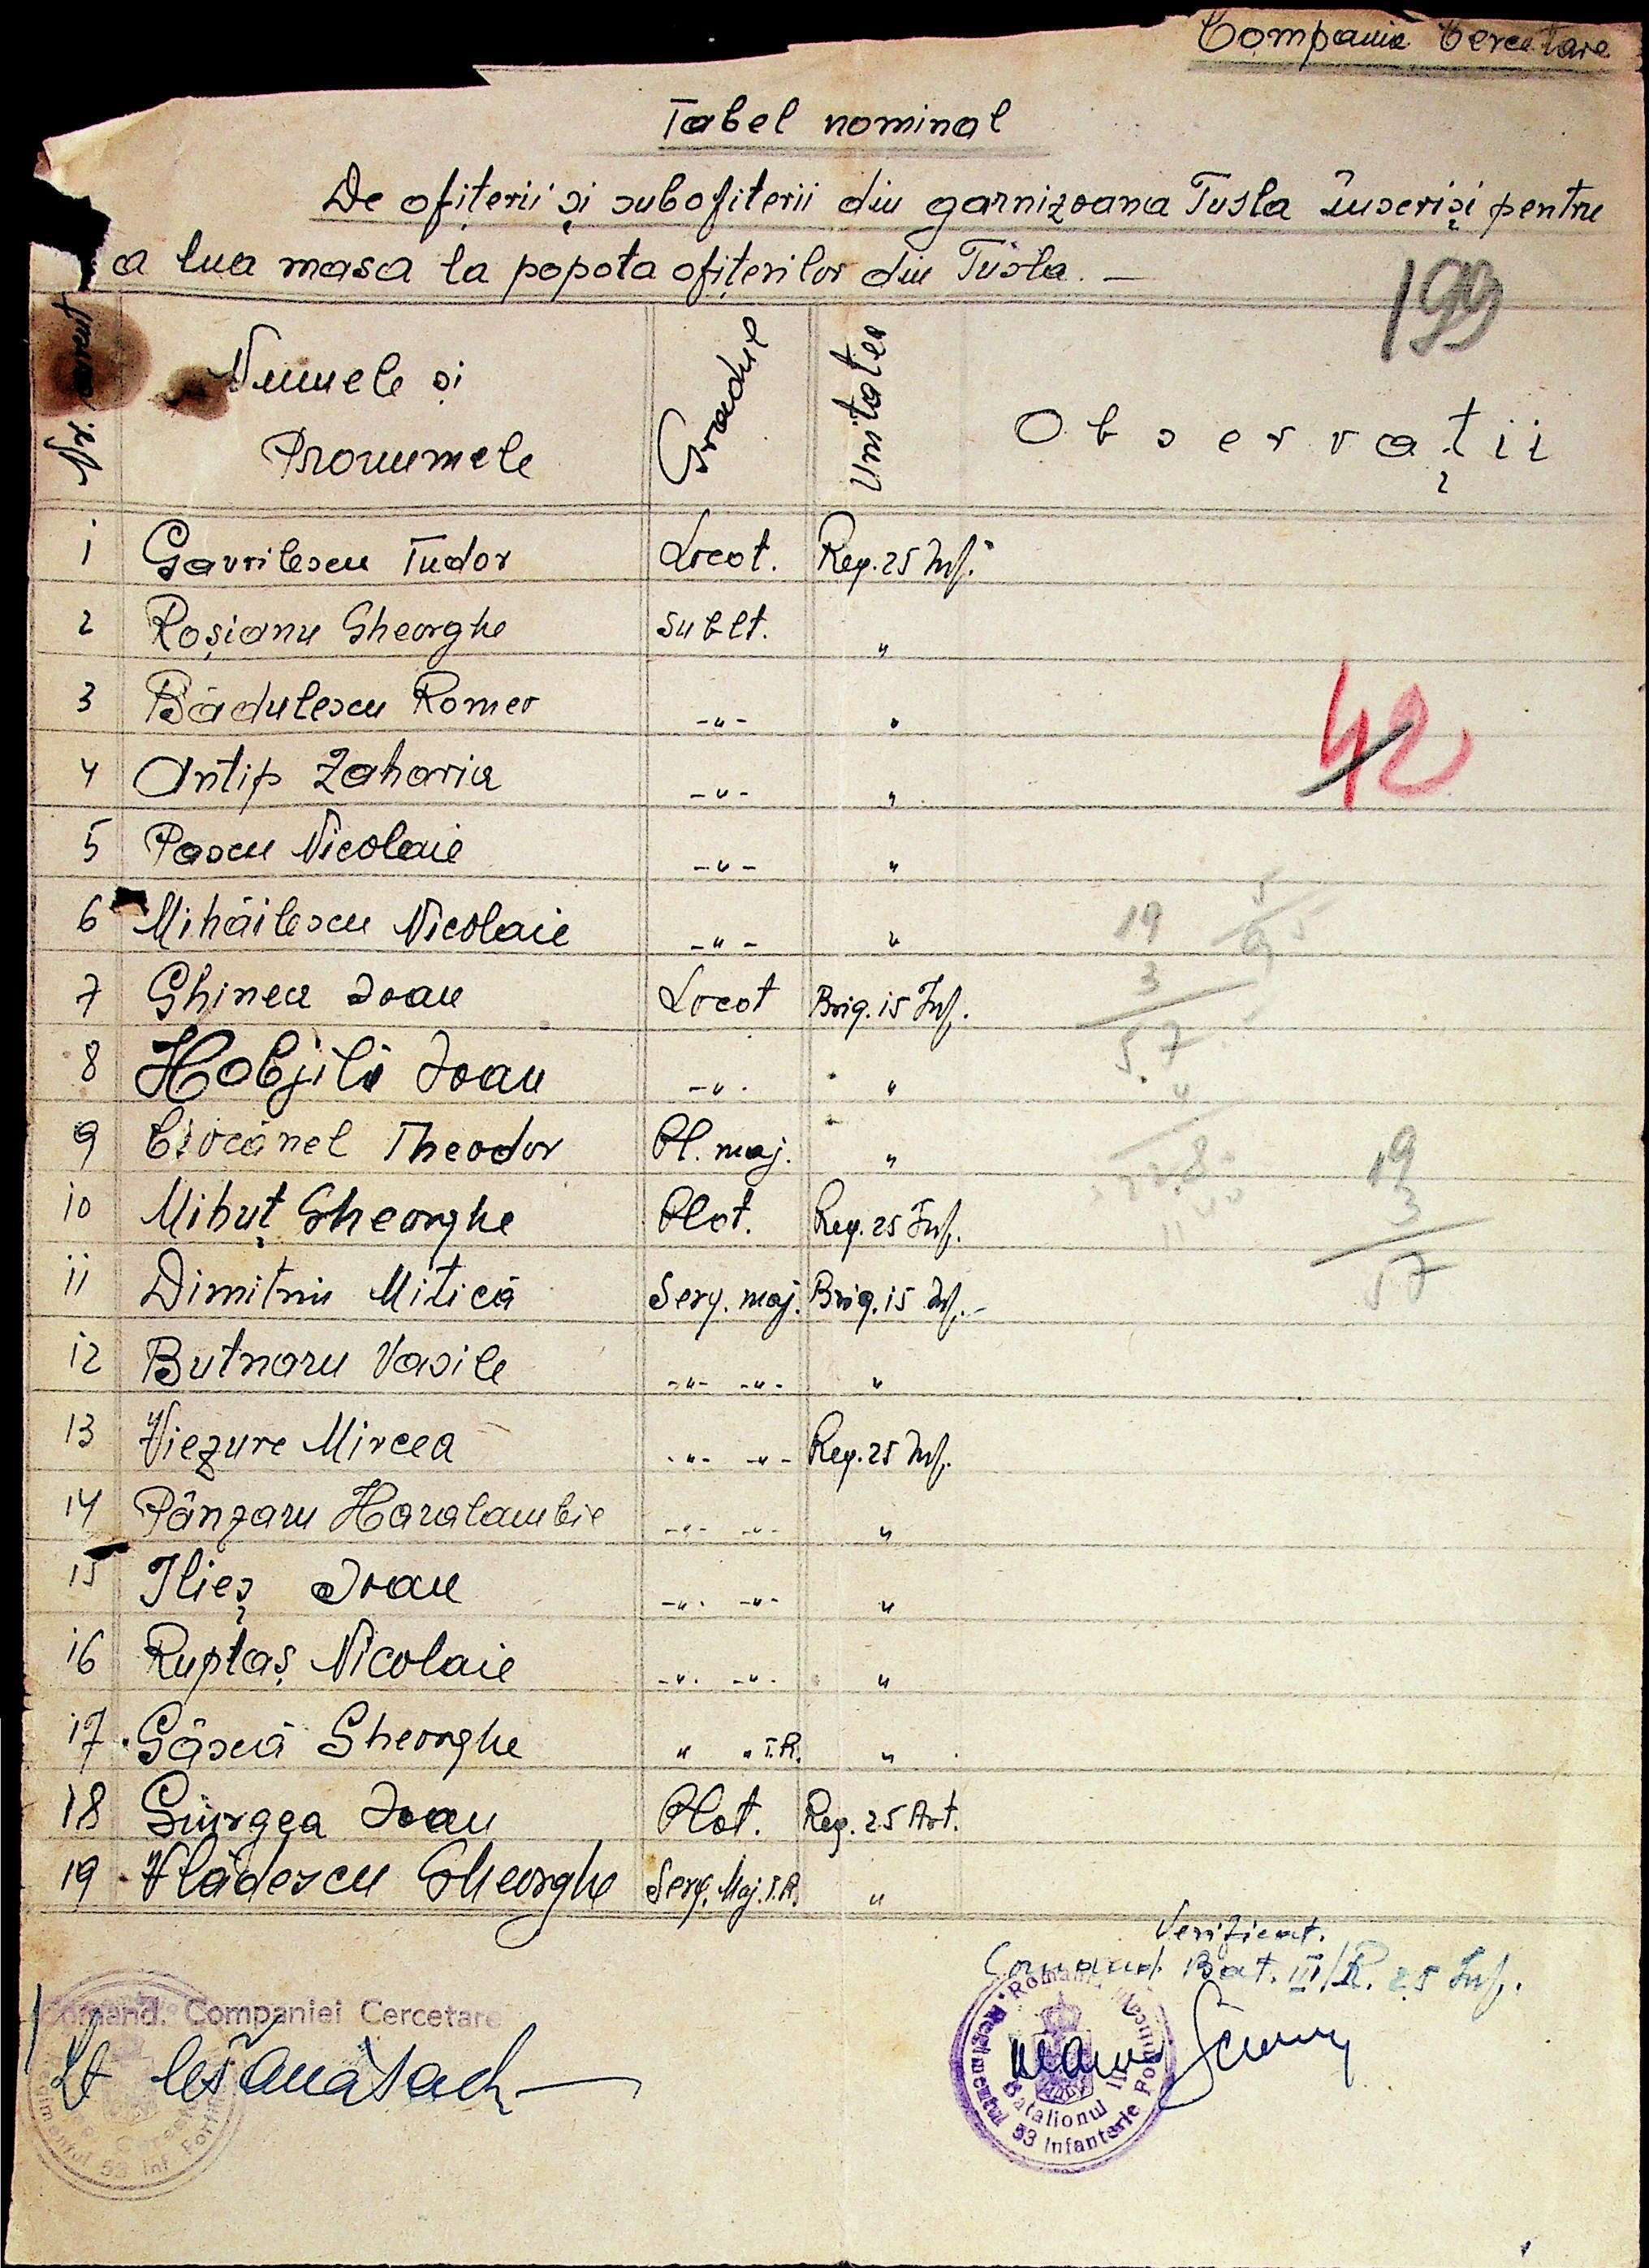 Compania Cercetare
Tabel nominal
De ofițerii și subofiterii din garnizoana Tusla înscriși pentru
a lua masa la popota ofițerilor din Tusla. —
199
Nr. curent Numele și Pronumele Gradul Unitatea Observații
1 Gavrilescu Tudor Locot. Reg. 25 Inf.
2 Roșianu Gheorghe Sublt. "
3 Bădulescu Romeo -"- "
4 Antip Zaharia -"- "
5 Pascu Nicolaie -"- "
6 Mihăilescu Nicolaie -"- "
7 Ghinea Ioan Locot Brig. 15 Inf.
8 Hobjilă Ioan -"- "
9 Ciocănel Theodor Pl. maj. "
10 Mihuț Gheorghe Plot. Reg. 25 Inf.
11 Dimitriu Mitică Serg. maj. Brig. 15 Inf.
12 Butnaru Vasile -"- -"- "
13 Viezure Mircea -"- -"- Reg. 25 Inf.
14 Pânzaru Haralambie -"- -"- "
15 Ilieș Ioan -"- -"- "
16 Ruptaș Nicolaie -"- -"- "
17 Gâscă Gheorghe " " T.R. "
18 Giurgea Ioan Plot. Reg. 25 Art.
19 Vlădescu Gheorghe Serg. Maj. T.R. "
42
19
3
57
19
3
57
Verificat.
Comand. Bat. III/R. 25 Inf.
Comand. Companiei Cercetare
Lt
Regimentul 53 Infanterie Fortificații
Batalionul III